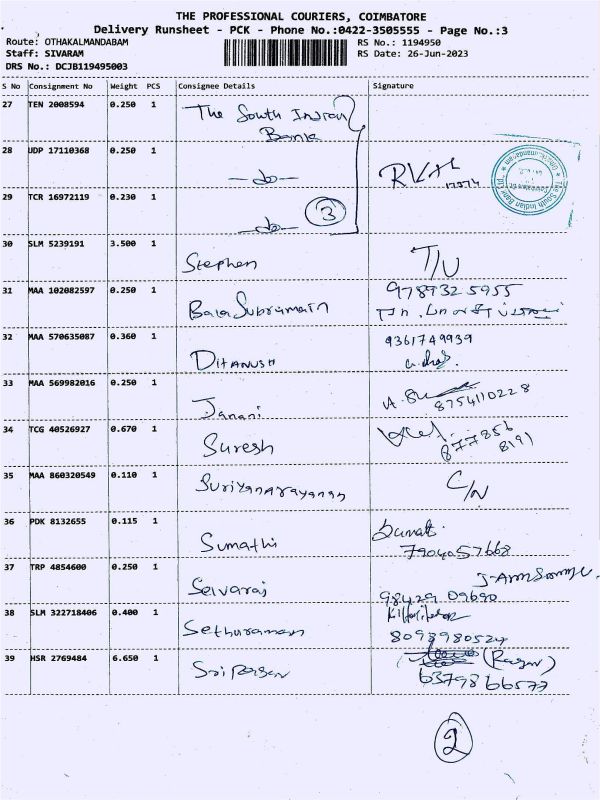 THE PROFESSIONAL COURIERS, COIMBATORE
Delivery Runsheet - PCK - Phone No.:0422-3505555 - Page No.:3
Route: OTHAKALMANDABAM RS No.: 1194950
Staff: SIVARAM RS Date: 26-Jun-2023
DRS No.: DCJB119495003
S No Consignment No Weight PCS Consignee Details Signature
27 TEN 2008594 0.250 1 The South Indian
Bank
28 UDP 17110368 0.250 1 —do—
29 TCR 16972119 0.230 1 —do— 3
The South Indian Bank Ltd
30 SLM 5239191 3.500 1 Stephen T/U
31 MAA 102082597 0.250 1 BalaSubramain 9789325955
32 MAA 570635087 0.360 1 DHANUSH 9361749939
33 MAA 569982016 0.250 1 Janani 8754110228
34 TCG 40526927 0.670 1 Suresh 877856
8191
35 MAA 860320549 0.110 1 Suriyanarayanan C/N
36 PDK 8132655 0.115 1 Sumathi
7904057668
37 TRP 4854600 0.250 1 Selvaraj
98429 09690
38 SLM 322718406 0.400 1 Sethuraman
8098980524
39 HSR 2769484 6.650 1 Sri Ragav (Ragav)
63798 66577
2